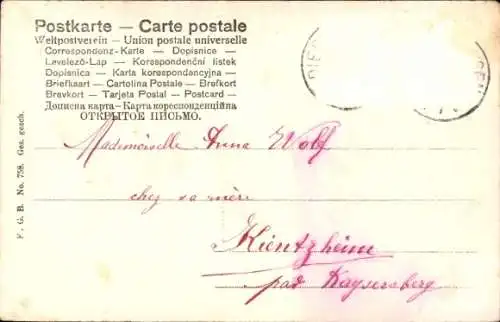 Postkarte — Carte postale
Weltpostverein — Union postale universelle
Correspondenz-Karte — Dopisnice
Levelező-Lap — Korespondenční lístek
Dopisnica — Karta korespondancyjna —
Briefkaart — Cartolina Postale — Brefkort
Brevkort — Tarjeta Postal — Postcard —
Дописна карта — Карта кореспонденційна
ОТКРЫТОЕ ПИСЬМО.
Mademoiselle Anna Wolf
chez sa mère
Kientzheim
pad Kaysersberg
F. G. B. No. 758. Ges. gesch.